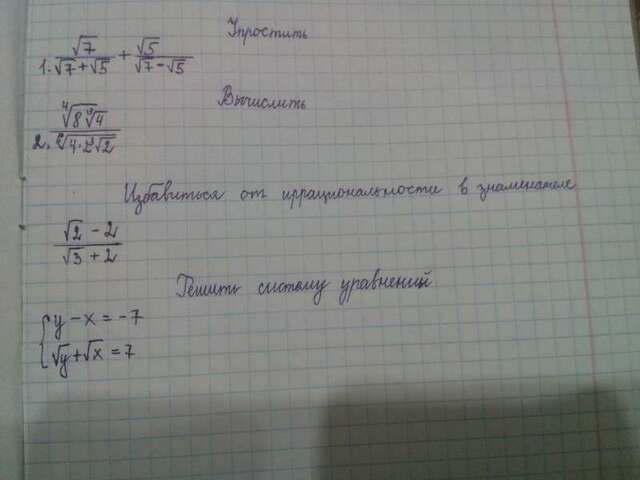 Упростить
1. √7/(√7+√5) + √5/(√7-√5)
Вычислить
2.
Избавиться от иррациональности в знаменателе
(√2 - 2)/(√3 + 2)
Решить систему уравнений
{ y - x = -7
√y + √x = 7